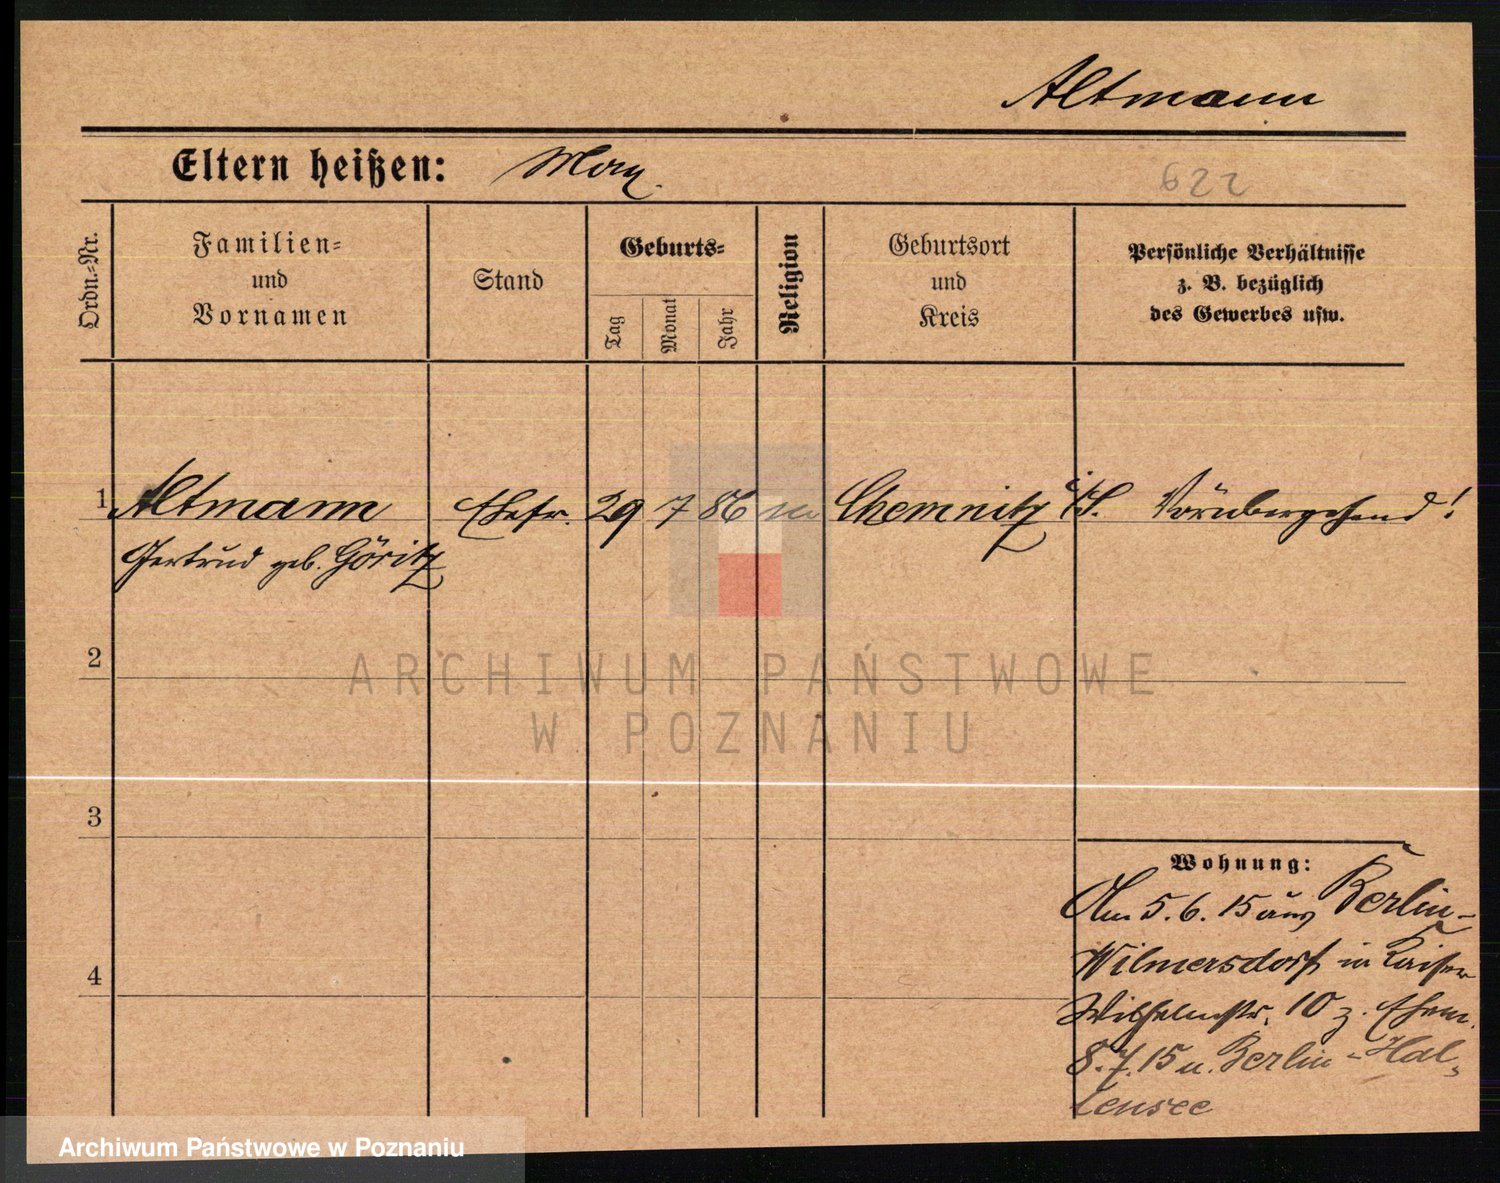 Altmann
Eltern heißen: Max
622
Ordn.-Nr.
Familien-
und
Vornamen
Stand
Geburts-
Tag
Monat
Jahr
Religion
Geburtsort
und
Kreis
Persönliche Verhältnisse
z. B. bezüglich
des Gewerbes usw.
1 Altmann Ehefr. 29 7 86 Chemnitz i/S. Vorübergehend!
Gertrud geb. Göritz
2
3
4
Wohnung:
Am 5.6.15 aus Berlin-
Wilmersdorf in Kaiser
Wilhelmstr. 10 z. Ehem.
8.7.15 n. Berlin-Hal-
lensee
ARCHIWUM PAŃSTWOWE
W POZNANIU
Archiwum Państwowe w Poznaniu